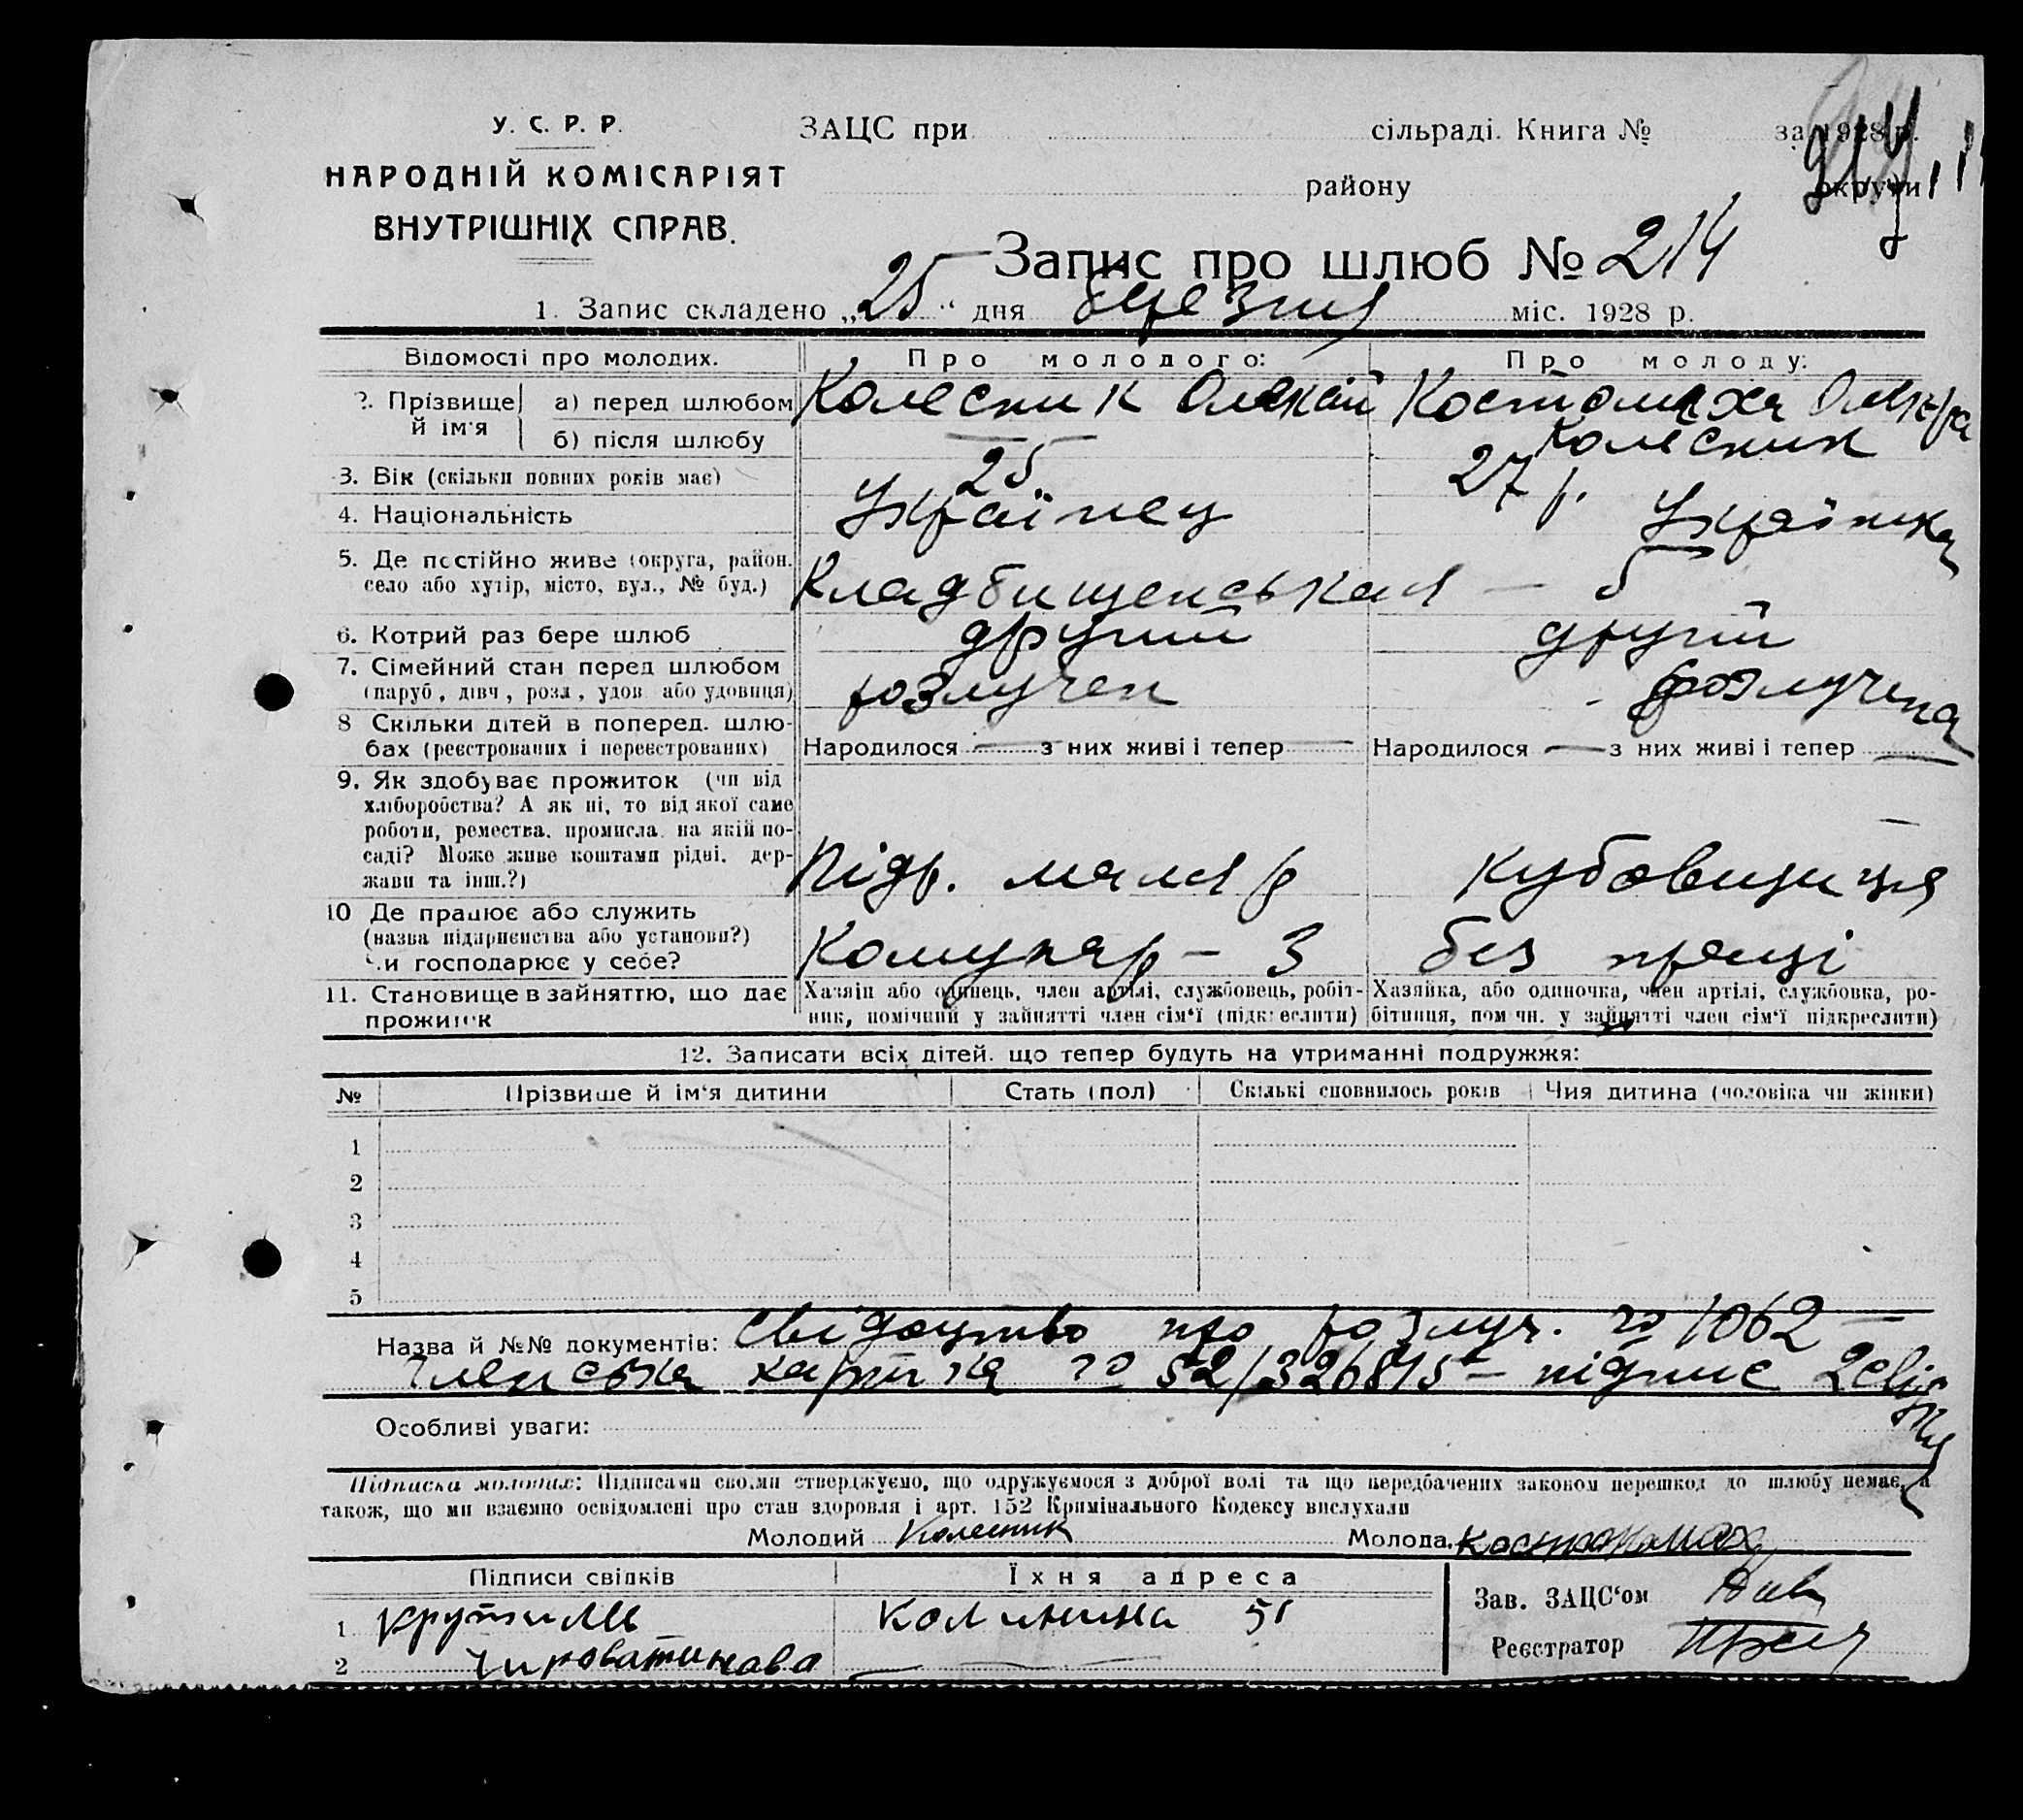 У. С. Р. Р.
НАРОДНІЙ КОМІСАРІЯТ
ВНУТРІШНІХ СПРАВ.
ЗАЦС при сільраді. Книга № за 1928 р.
району округи
Запис про шлюб № 214
1. Запис складено „25“ дня березня міс. 1928 р.
Відомості про молодих. Про молодого: Про молоду:
2. Прізвище й ім'я а) перед шлюбом Колесник Олексій Костомаха
б) після шлюбу — Колесник
3. Вік (скільки повних років має) 25 27 р.
4. Національність Українец Українка
5. Де постійно живе (округа, район, Кладбищенськая — 5
село або хутір, місто, вул., № буд.)
6. Котрий раз бере шлюб другий другий
7. Сімейний стан перед шлюбом розлучен розлучена
(паруб., дівч., розл., удов. або удовиця)
8 Скільки дітей в поперед. шлю-
бах (реєстрованих і нереєстрованих) Народилося — з них живі і тепер — Народилося — з них живі і тепер —
9. Як здобуває прожиток (чи від
хліборобства? А як ні, то від якої саме
роботи, ремества, промисла, на якій по-
саді? Може живе коштами рідні, дер- Підр. маляр
жави та інш.?)
10 Де працює або служить
(назва підприємства або установи?) Комунар - 3 без праці
Чи господарює у себе?
11. Становище в зайняттю, що дає Хазяїн або одинець, член артілі, службовець, робіт- Хазяйка, або одиночка, член артілі, службовка, ро-
прожиток ник, помічний у зайнятті член сім'ї (підкреслити) бітниця, помічн. у зайнятті член сім'ї підкреслити)
12. Записати всіх дітей, що тепер будуть на утриманні подружжя:
№ Прізвище й ім'я дитини Стать (пол) Скількі сповнилось років Чия дитина (чоловіка чи жінки)
1
2
3
4
5
Назва й №№ документів: Свідоцтво про розлуч. № 1062 —
членська картка № 52/326815 - підпис
Особливі уваги:
Підписка молодих: Підписами своїми стверджуємо, що одружуємося з доброї волі та що передбачених законом перешкод до шлюбу немає, а
також, що ми взаємно освідомлені про стан здоровля і арт. 152 Кримінального Кодексу вислухали
Молодий Колесник Молода.
Підписи свідків Їхня адреса
1 Калинина 51 Зав. ЗАЦС'ом
2 Реєстратор